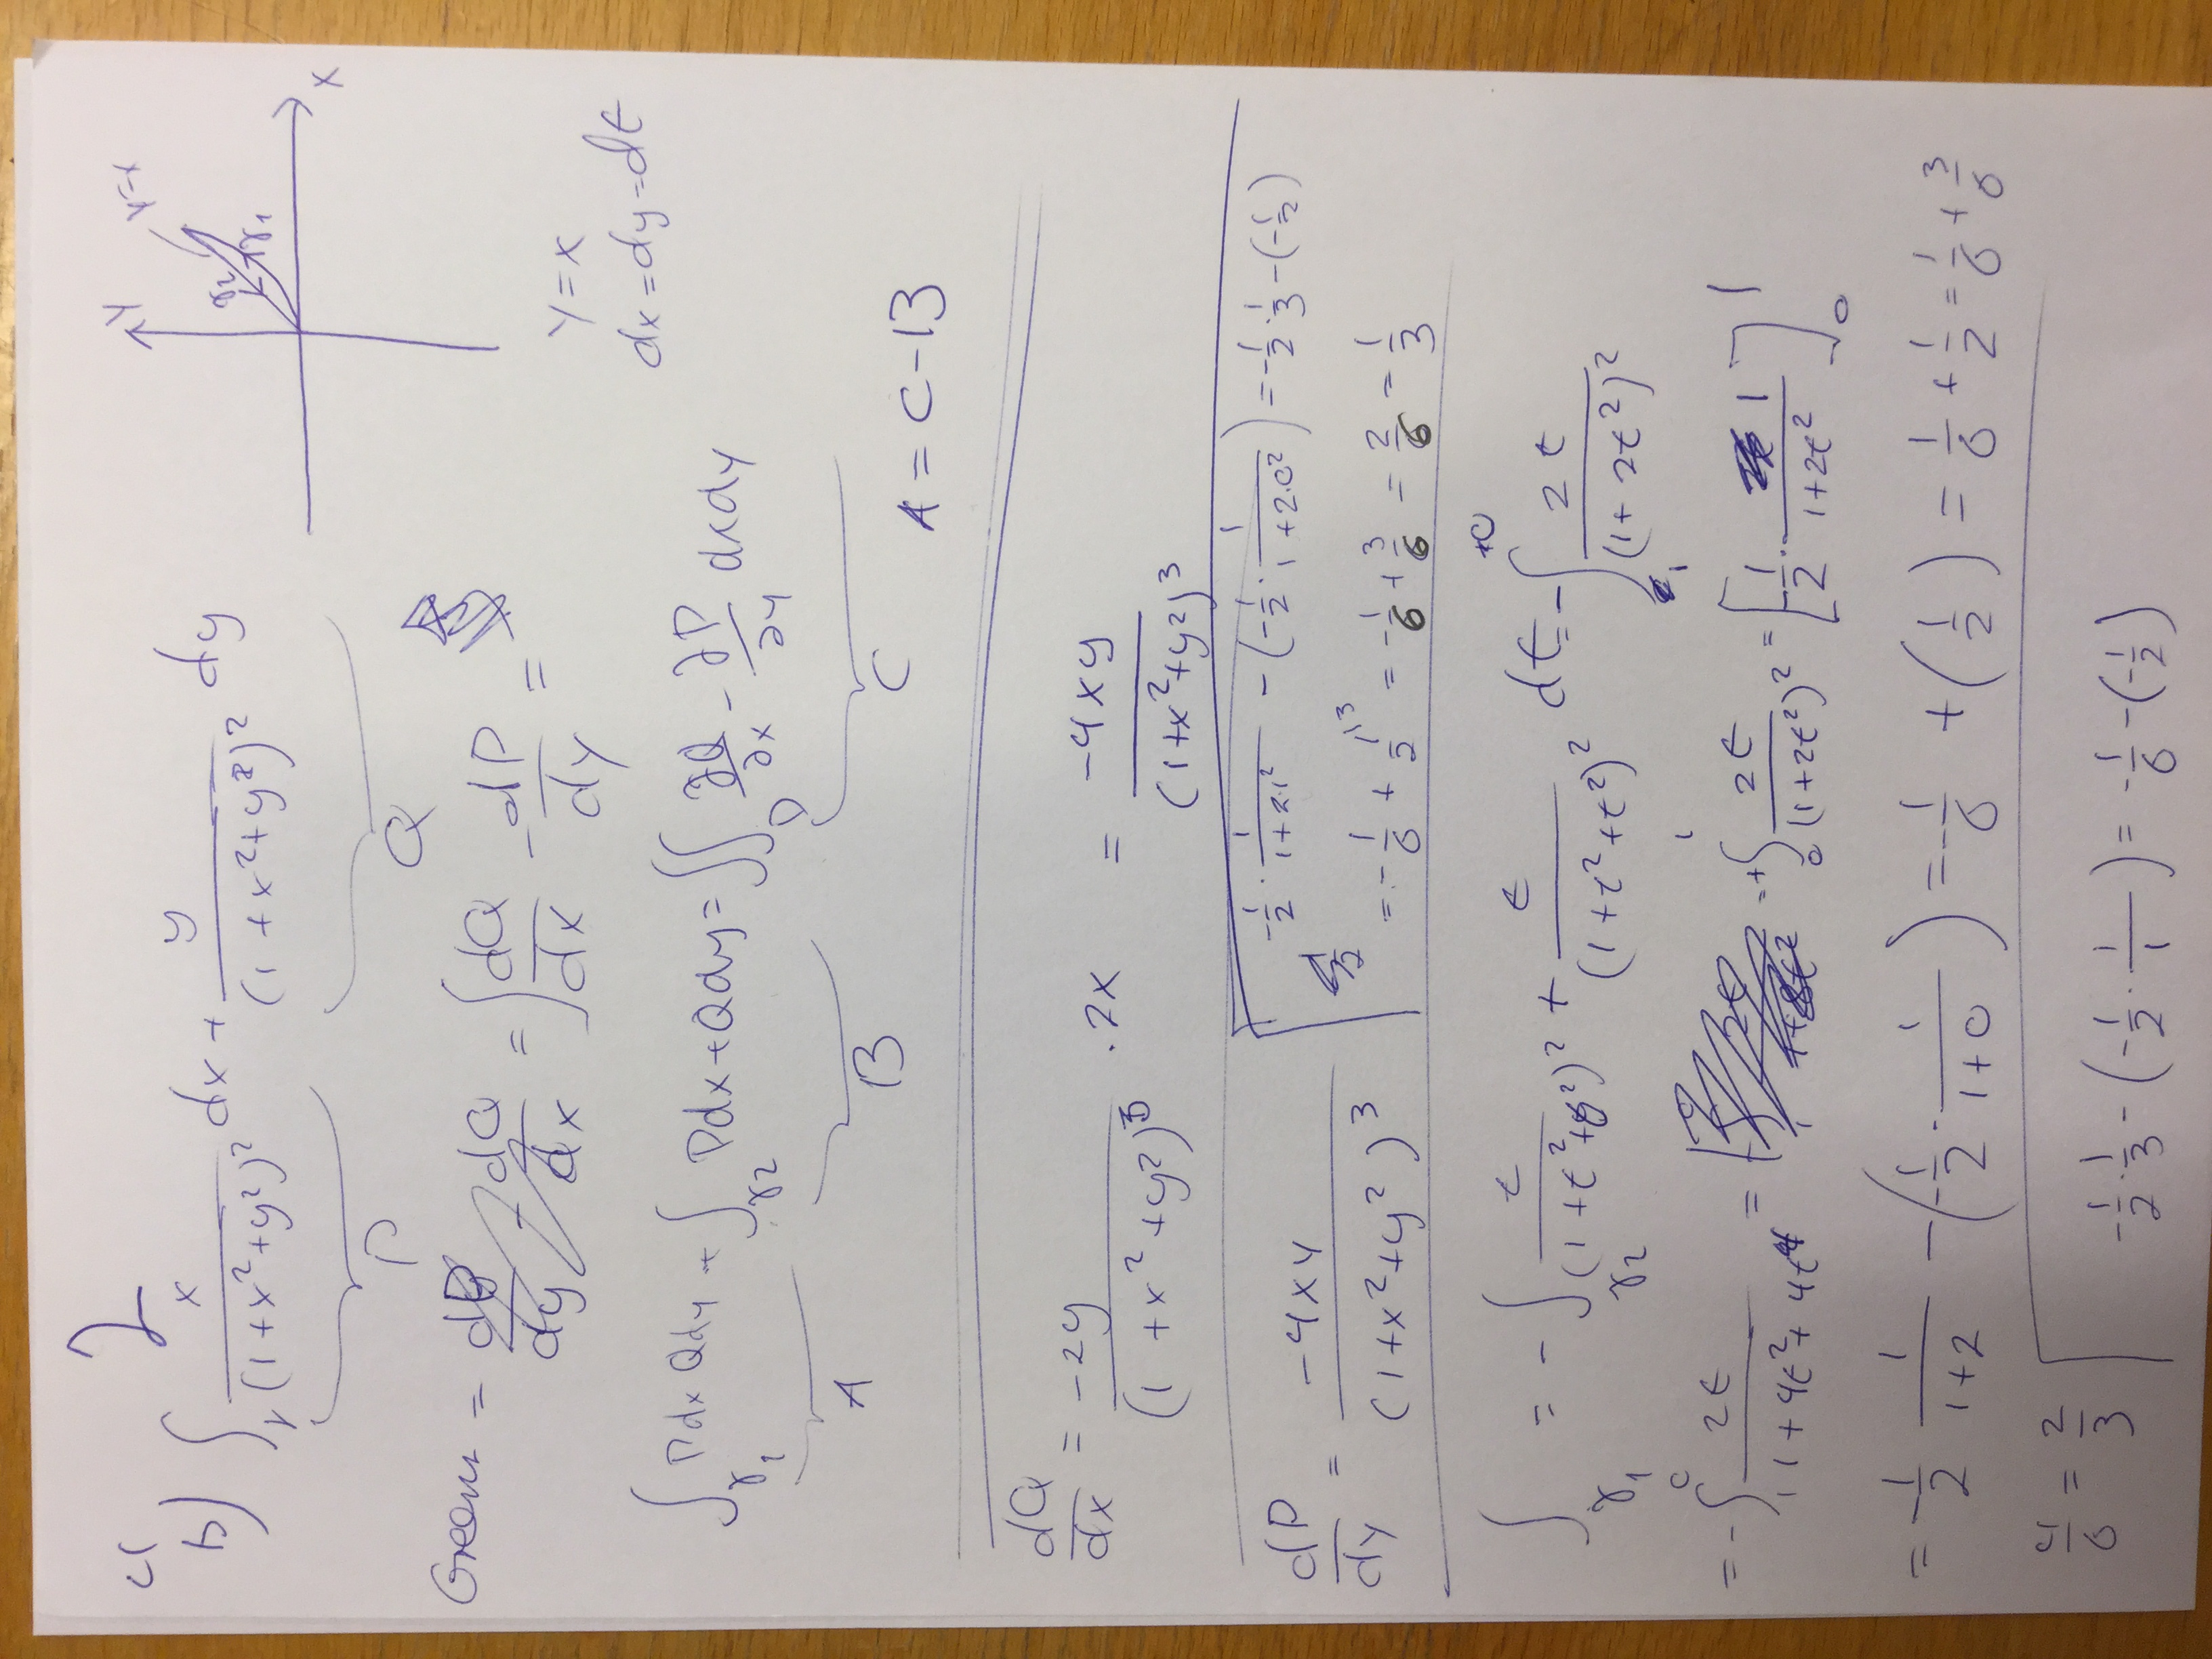 2
b) ∫_γ x/(1+x²+y²)² dx + y/(1+x²+y²)² dy
P Q
y
y=x
γ2 γ1
x
Green = dP/dy - dQ/dx = ∫ dQ/dx - dP/dy =
y=x
dx=dy=dt
∫_γ1 Pdx Qdy + ∫_γ2 Pdx+Qdy = ∬_D ∂Q/∂x - ∂P/∂y dxdy
A B C
A = C-B
dQ/dx = -2y/(1+x²+y²)³ · 2x = -4xy/(1+x²+y²)³
dP/dy = -4xy/(1+x²+y²)³
-1/2 · 1/(1+2·1²) - (-1/2 · 1/(1+2·0²)) = -1/2 · 1/3 - (-1/2)
= -1/6 + 1/2 = -1/6 + 3/6 = 2/6 = 1/3
∫_γ1 = -∫_γ2 t/(1+t²+t²)² + t/(1+t²+t²)² dt = -∫_1^0 2t/(1+2t²)²
= -∫_1^0 2t/(1+4t²+4t⁴) = = +∫_0^1 2t/(1+2t²)² = [-1/2 · 1/(1+2t²)]_0^1
= -1/2 1/(1+2) - (-1/2 · 1/(1+0)) = -1/6 + (1/2) = 1/6 + 1/2 = 1/6 + 3/6
4/6 = 2/3
-1/2 · 1/3 - (-1/2 · 1/1) = -1/6 - (-1/2)